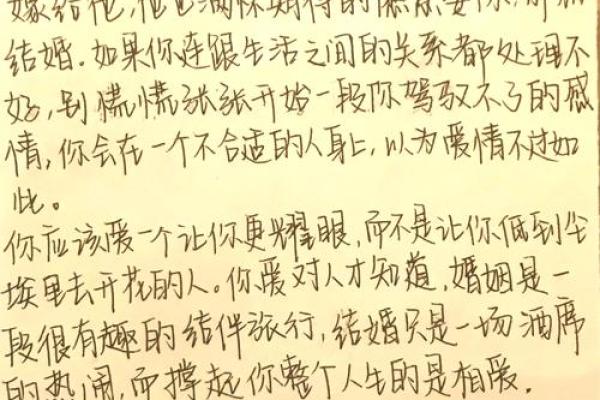 嫁给他,他也满怀期待的
结婚.如果你连跟生活之间的关系都处理不
好,别慌慌张张开始一段你驾驭不了的感
情,你会在一个不合适的人身上,以为爱情不过如
此。
你应该爱一个让你更耀眼,而不是让你低到尘
埃里去开花的人。你爱对人才知道,婚姻是一
段很有趣的结伴旅行,结婚只是一场酒席
的热闹,而撑起你整个人生的是相爱.